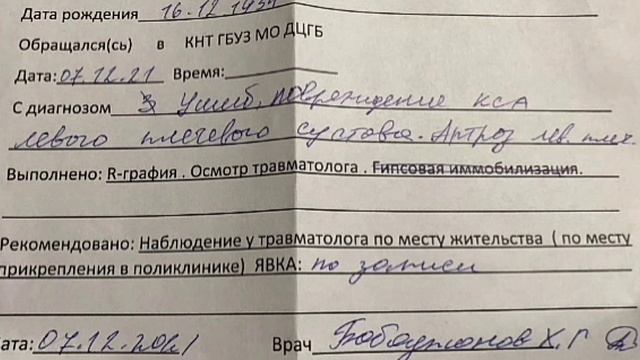 Дата рождения 16.12.193
Обращался(сь) в КНТ ГБУЗ МО ДЦГБ
Дата: 07.12.21 Время:
С диагнозом Ушиб, повреждение КСА
левого плечевого сустава. Артроз лев. плеч.
Выполнено: R-графия . Осмотр травматолога . Гипсовая иммобилизация.
Рекомендовано: Наблюдение у травматолога по месту жительства ( по месту
прикрепления в поликлинике) ЯВКА: по записи
Дата: 07.12.2021 Врач Бободжонов Х. Г